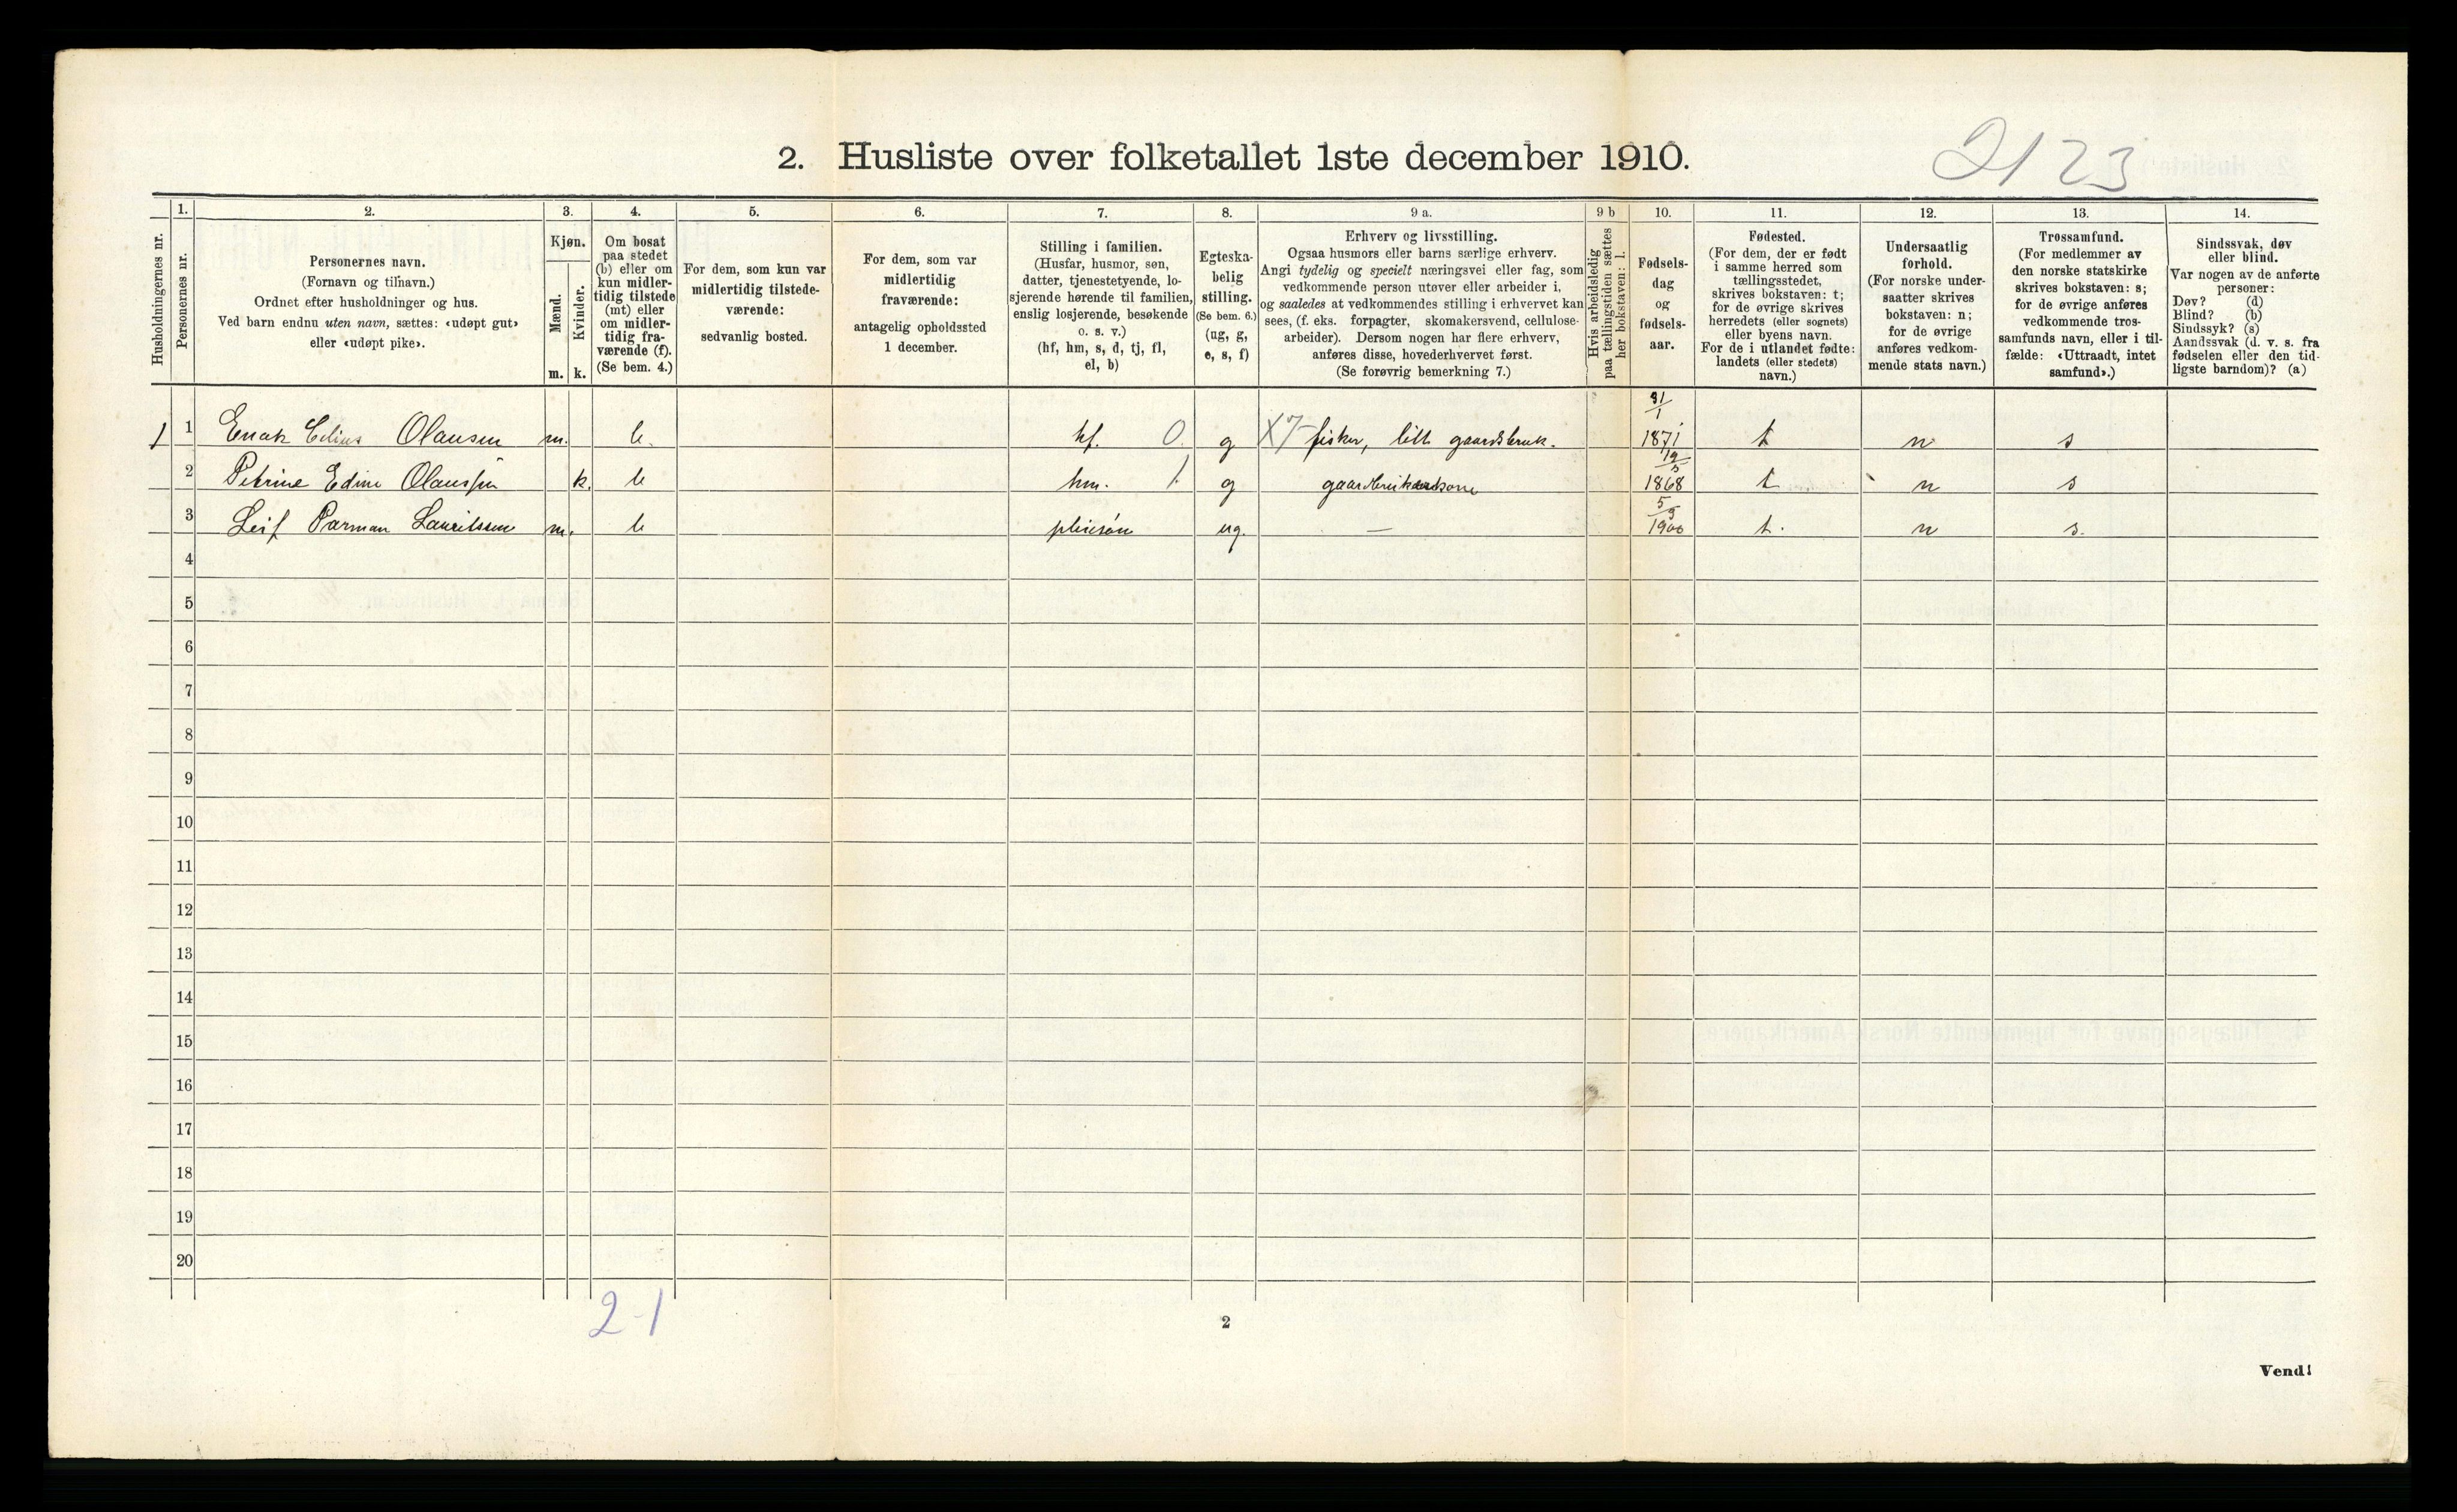 2. Husliste over folketallet 1ste december 1910.
2123
Husholdningernes nr.
1.
Personernes nr.
2.
Personernes navn.
(Fornavn og tilnavn.)
Ordnet efter husholdninger og hus.
Ved barn endnu uten navn, sættes: «udøpt gut»
eller «udøpt pike».
3.
Kjøn.
Mænd.
Kvinder.
m. k.
4.
Om bosat
paa stedet
(b) eller om
kun midler-
tidig tilstede
(mt) eller
om midler-
tidig fra-
værende (f).
(Se bem. 4.)
5.
For dem, som kun var
midlertidig tilstede-
værende:
sedvanlig bosted.
6.
For dem, som var
midlertidig
fraværende:
antagelig opholdssted
1 december.
7.
Stilling i familien.
(Husfar, husmor, søn,
datter, tjenestetyende, lo-
sjerende hørende til familien,
enslig losjerende, besøkende
o. s. v.)
(hf, hm, s, d, tj, fl,
el, b)
8.
Egteska-
belig
stilling.
(Se bem. 6.)
(ug, g,
e, s, f)
9 a.
Erhverv og livsstilling.
Ogsaa husmors eller barns særlige erhverv.
Angi tydelig og specielt næringsvei eller fag, som
vedkommende person utøver eller arbeider i,
og saaledes at vedkommendes stilling i erhvervet kan
sees, (f. eks. forpagter, skomakersvend, cellulose-
arbeider). Dersom nogen har flere erhverv,
anføres disse, hovederhvervet først.
(Se forøvrig bemerkning 7.)
9 b
Hvis arbeidsledig
paa tællingstiden sættes
her bokstaven: l.
10.
Fødsels-
dag
og
fødsels-
aar.
11.
Fødested.
(For dem, der er født
i samme herred som
tællingsstedet,
skrives bokstaven: t;
for de øvrige skrives
herredets (eller sognets)
eller byens navn.
For de i utlandet fødte:
landets (eller stedets)
navn.)
12.
Undersaatlig
forhold.
(For norske under-
saatter skrives
bokstaven: n;
for de øvrige
anføres vedkom-
mende stats navn.)
13.
Trossamfund.
(For medlemmer av
den norske statskirke
skrives bokstaven: s;
for de øvrige anføres
vedkommende tros-
samfunds navn, eller i til-
fælde: «Uttraadt, intet
samfund».)
14.
Sindssvak, døv
eller blind.
Var nogen av de anførte
personer:
Døv? (d)
Blind? (b)
Sindssyk? (s)
Aandssvak (d. v. s. fra
fødselen eller den tid-
ligste barndom)? (a)
1 1 Enok Edias Olausen m. b. hf. 0 g X7 fisker, litt gaardsbruk. 31/1 1871 t n s
2 Petrine Edine Olaussen k. b hm. 1 g gaardbrukerkone 19/5 1868 t n s
3 Leif Parman Lauritssen m. b pleiesøn ug. — 5/9 1900 t. n s.
4
5
6
7
8
9
10
11
12
13
14
15
16
17
18
19
20
2-1
2
Vend!